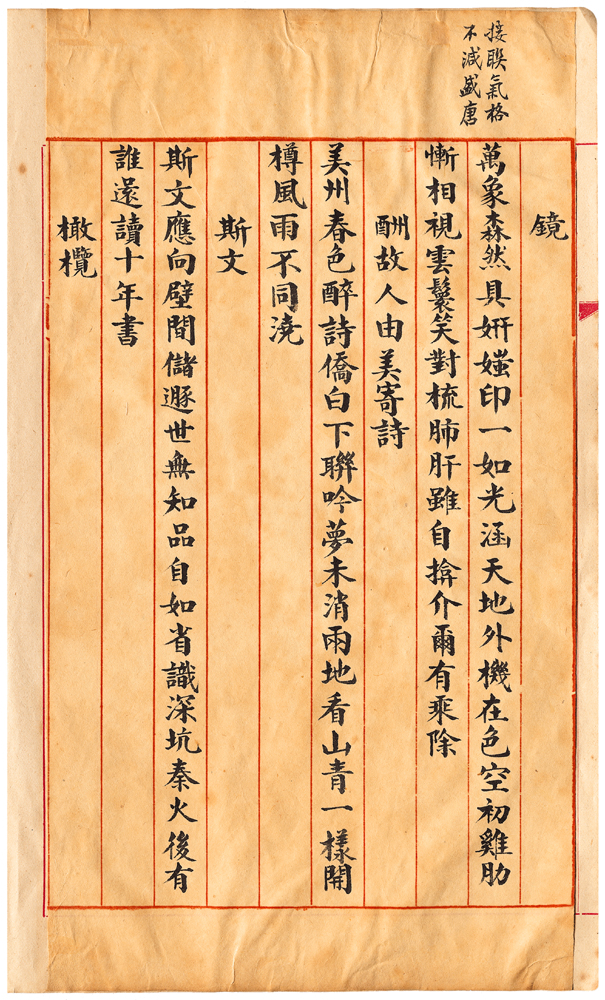 接聯氣格
不減盛唐
鏡
萬象森然具妍媸印一如光涵天地外機在色空初雞肋
慚相視雲鬟笑對梳肺肝雖自揜介爾有乘除
酬故人由美寄詩
美州春色醉詩僑白下聯吟夢未消兩地看山青一樣開
樽風雨不同澆
斯文
斯文應向壁間儲遯世無知品自如省識深坑秦火後有
誰還讀十年書
橄欖